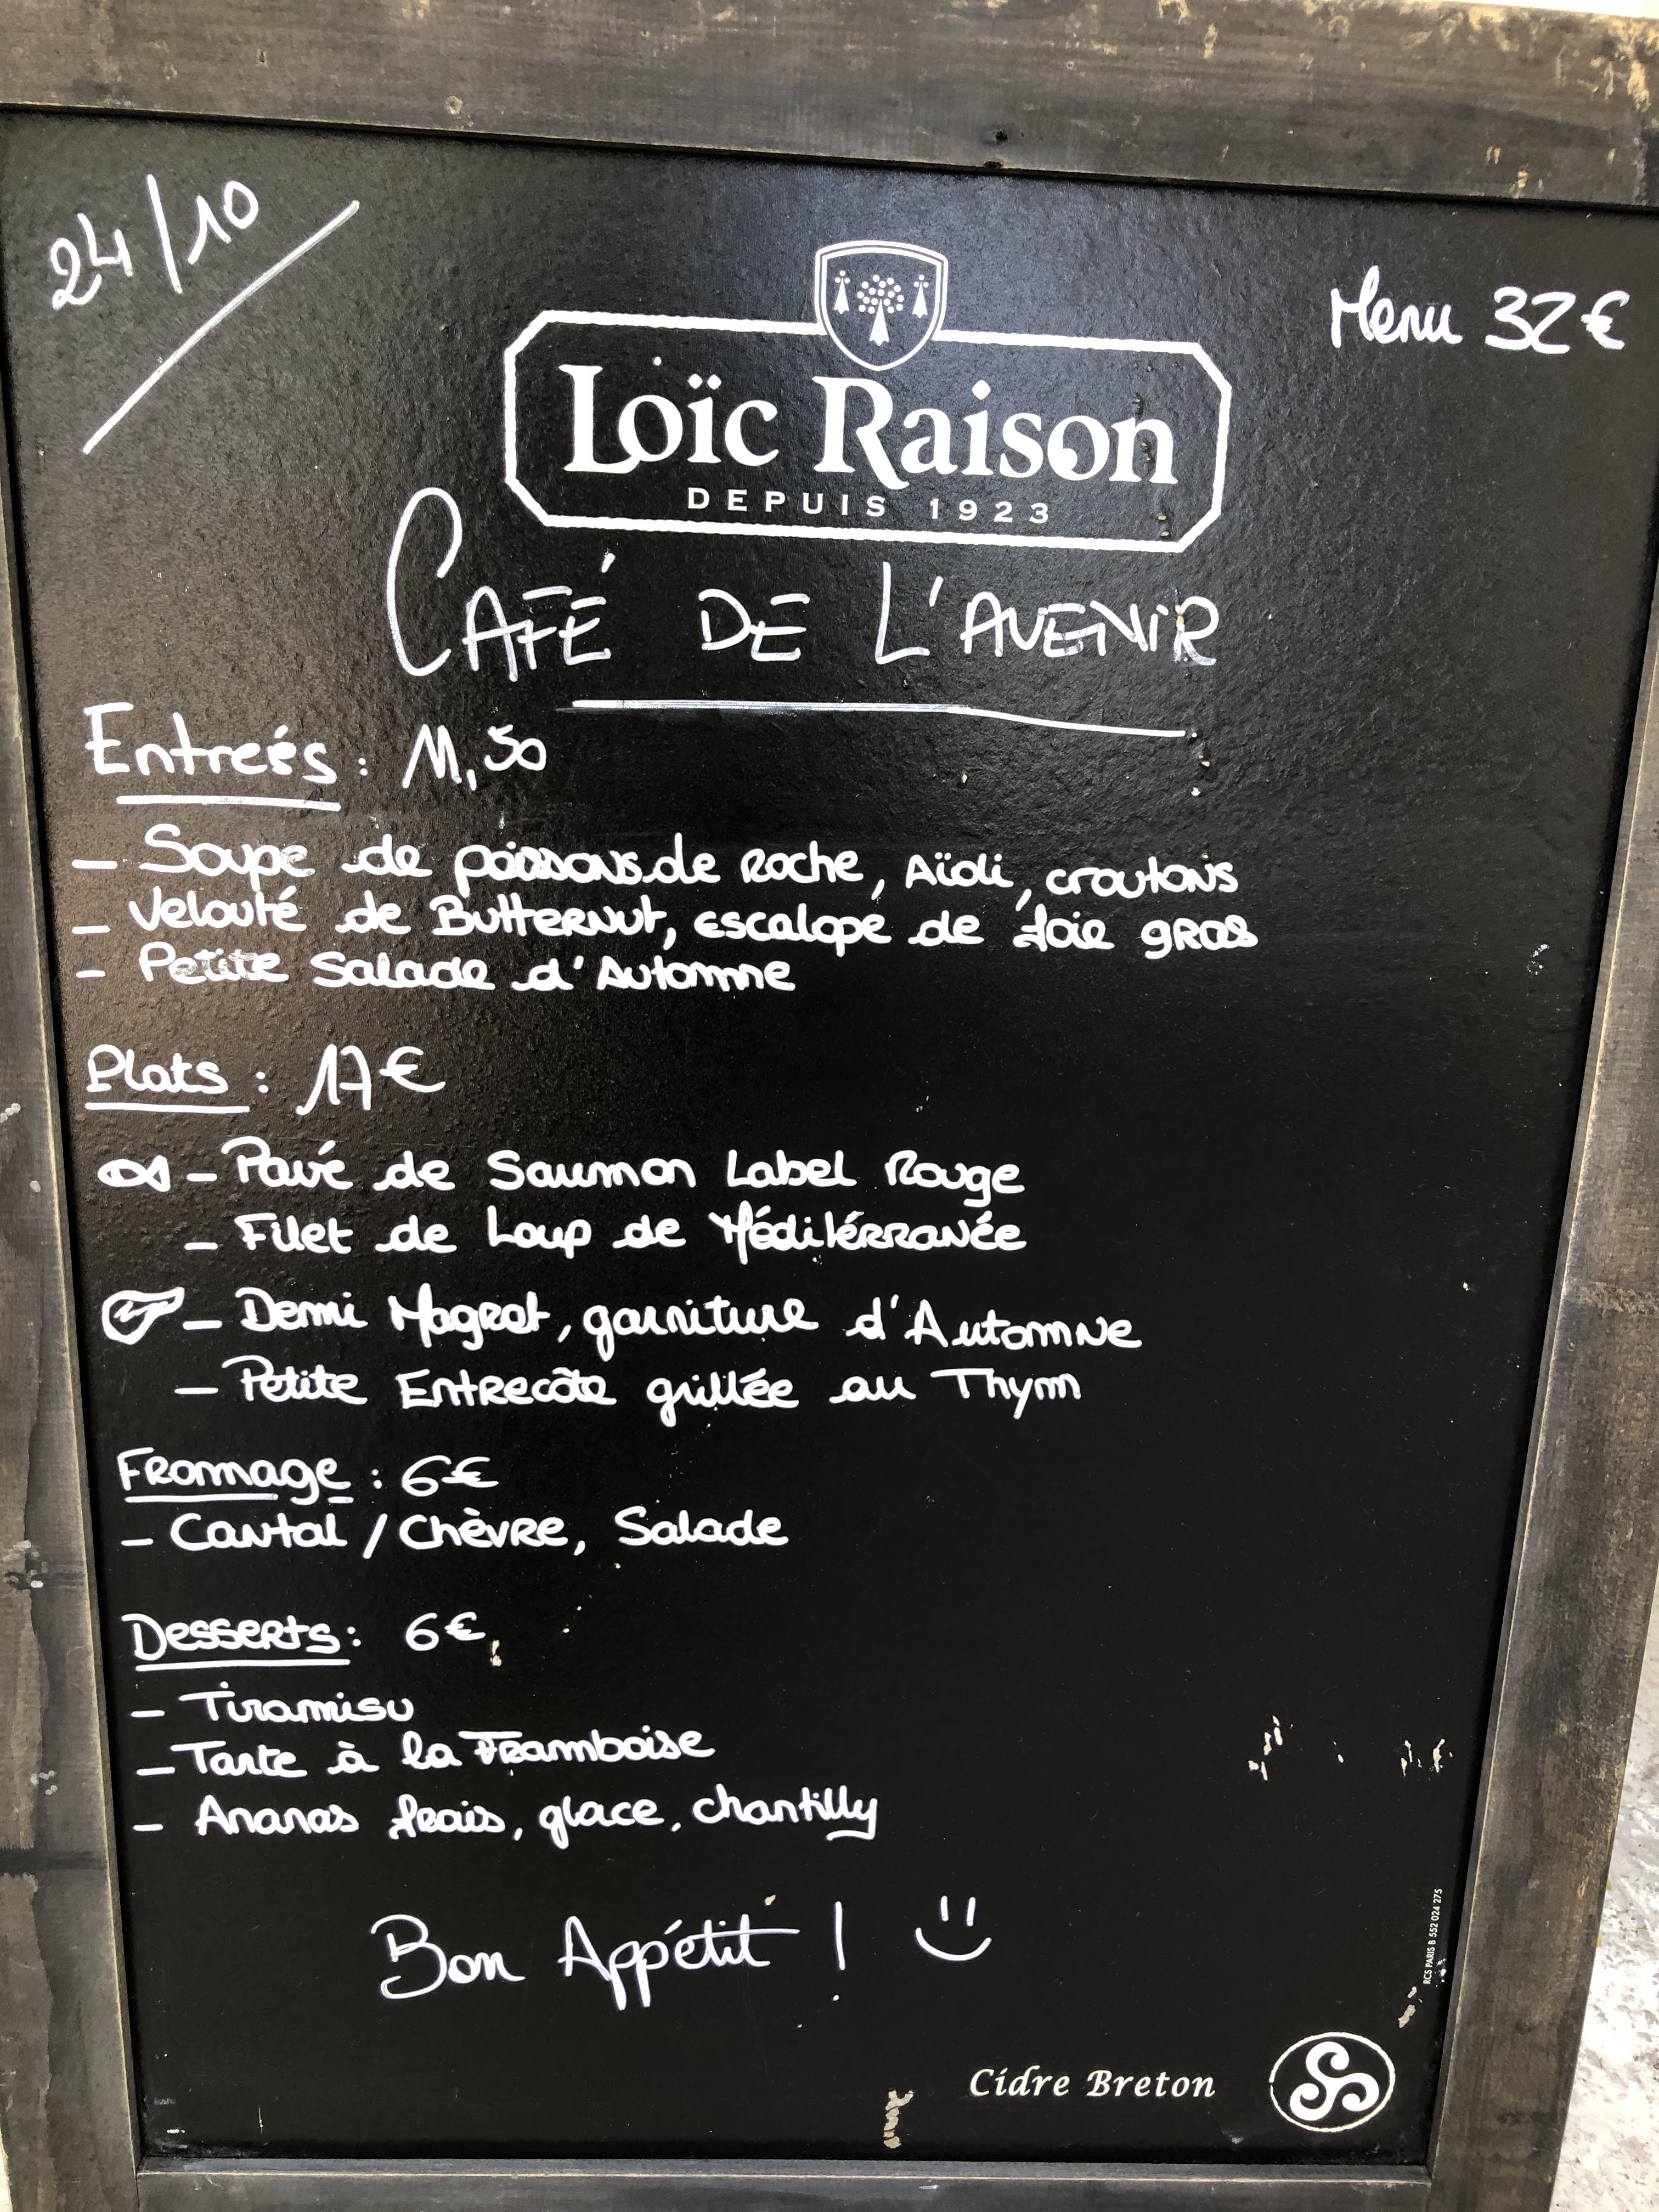 24/10
Menu 32€
Loïc Raison
DEPUIS 1923
CAFÉ DE L'AVENIR
Entreés : 11,50
- Soupe de poissons de Roche, Aïoli, croutons
- Velouté de Butternut, escalope de foie gras
- Petite Salade d'Automne
Plats : 17€
- Pavé de Saumon Label Rouge
- Filet de Loup de Méditérranée
- Demi Magret, garniture d'Automne
- Petite Entrecôte grillée au Thym
Fromage : 6€
- Cantal / Chèvre, Salade
Desserts : 6€
- Tiramisu
- Tarte à la Framboise
- Ananas frais, glace, chantilly
Bon Appétit !
RCS PARIS B 552 024 275
Cidre Breton